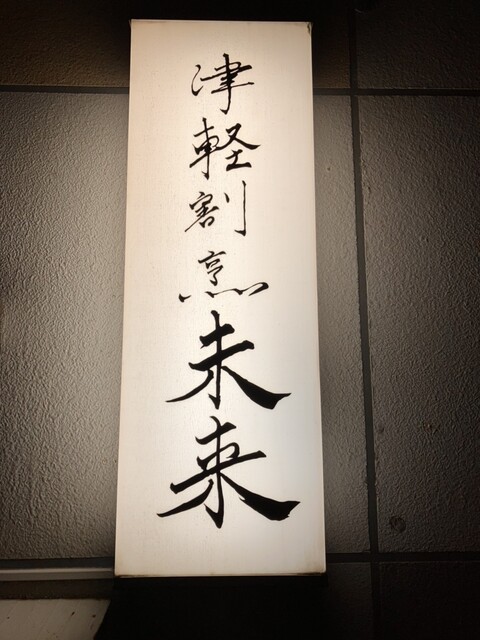 津軽割烹未来